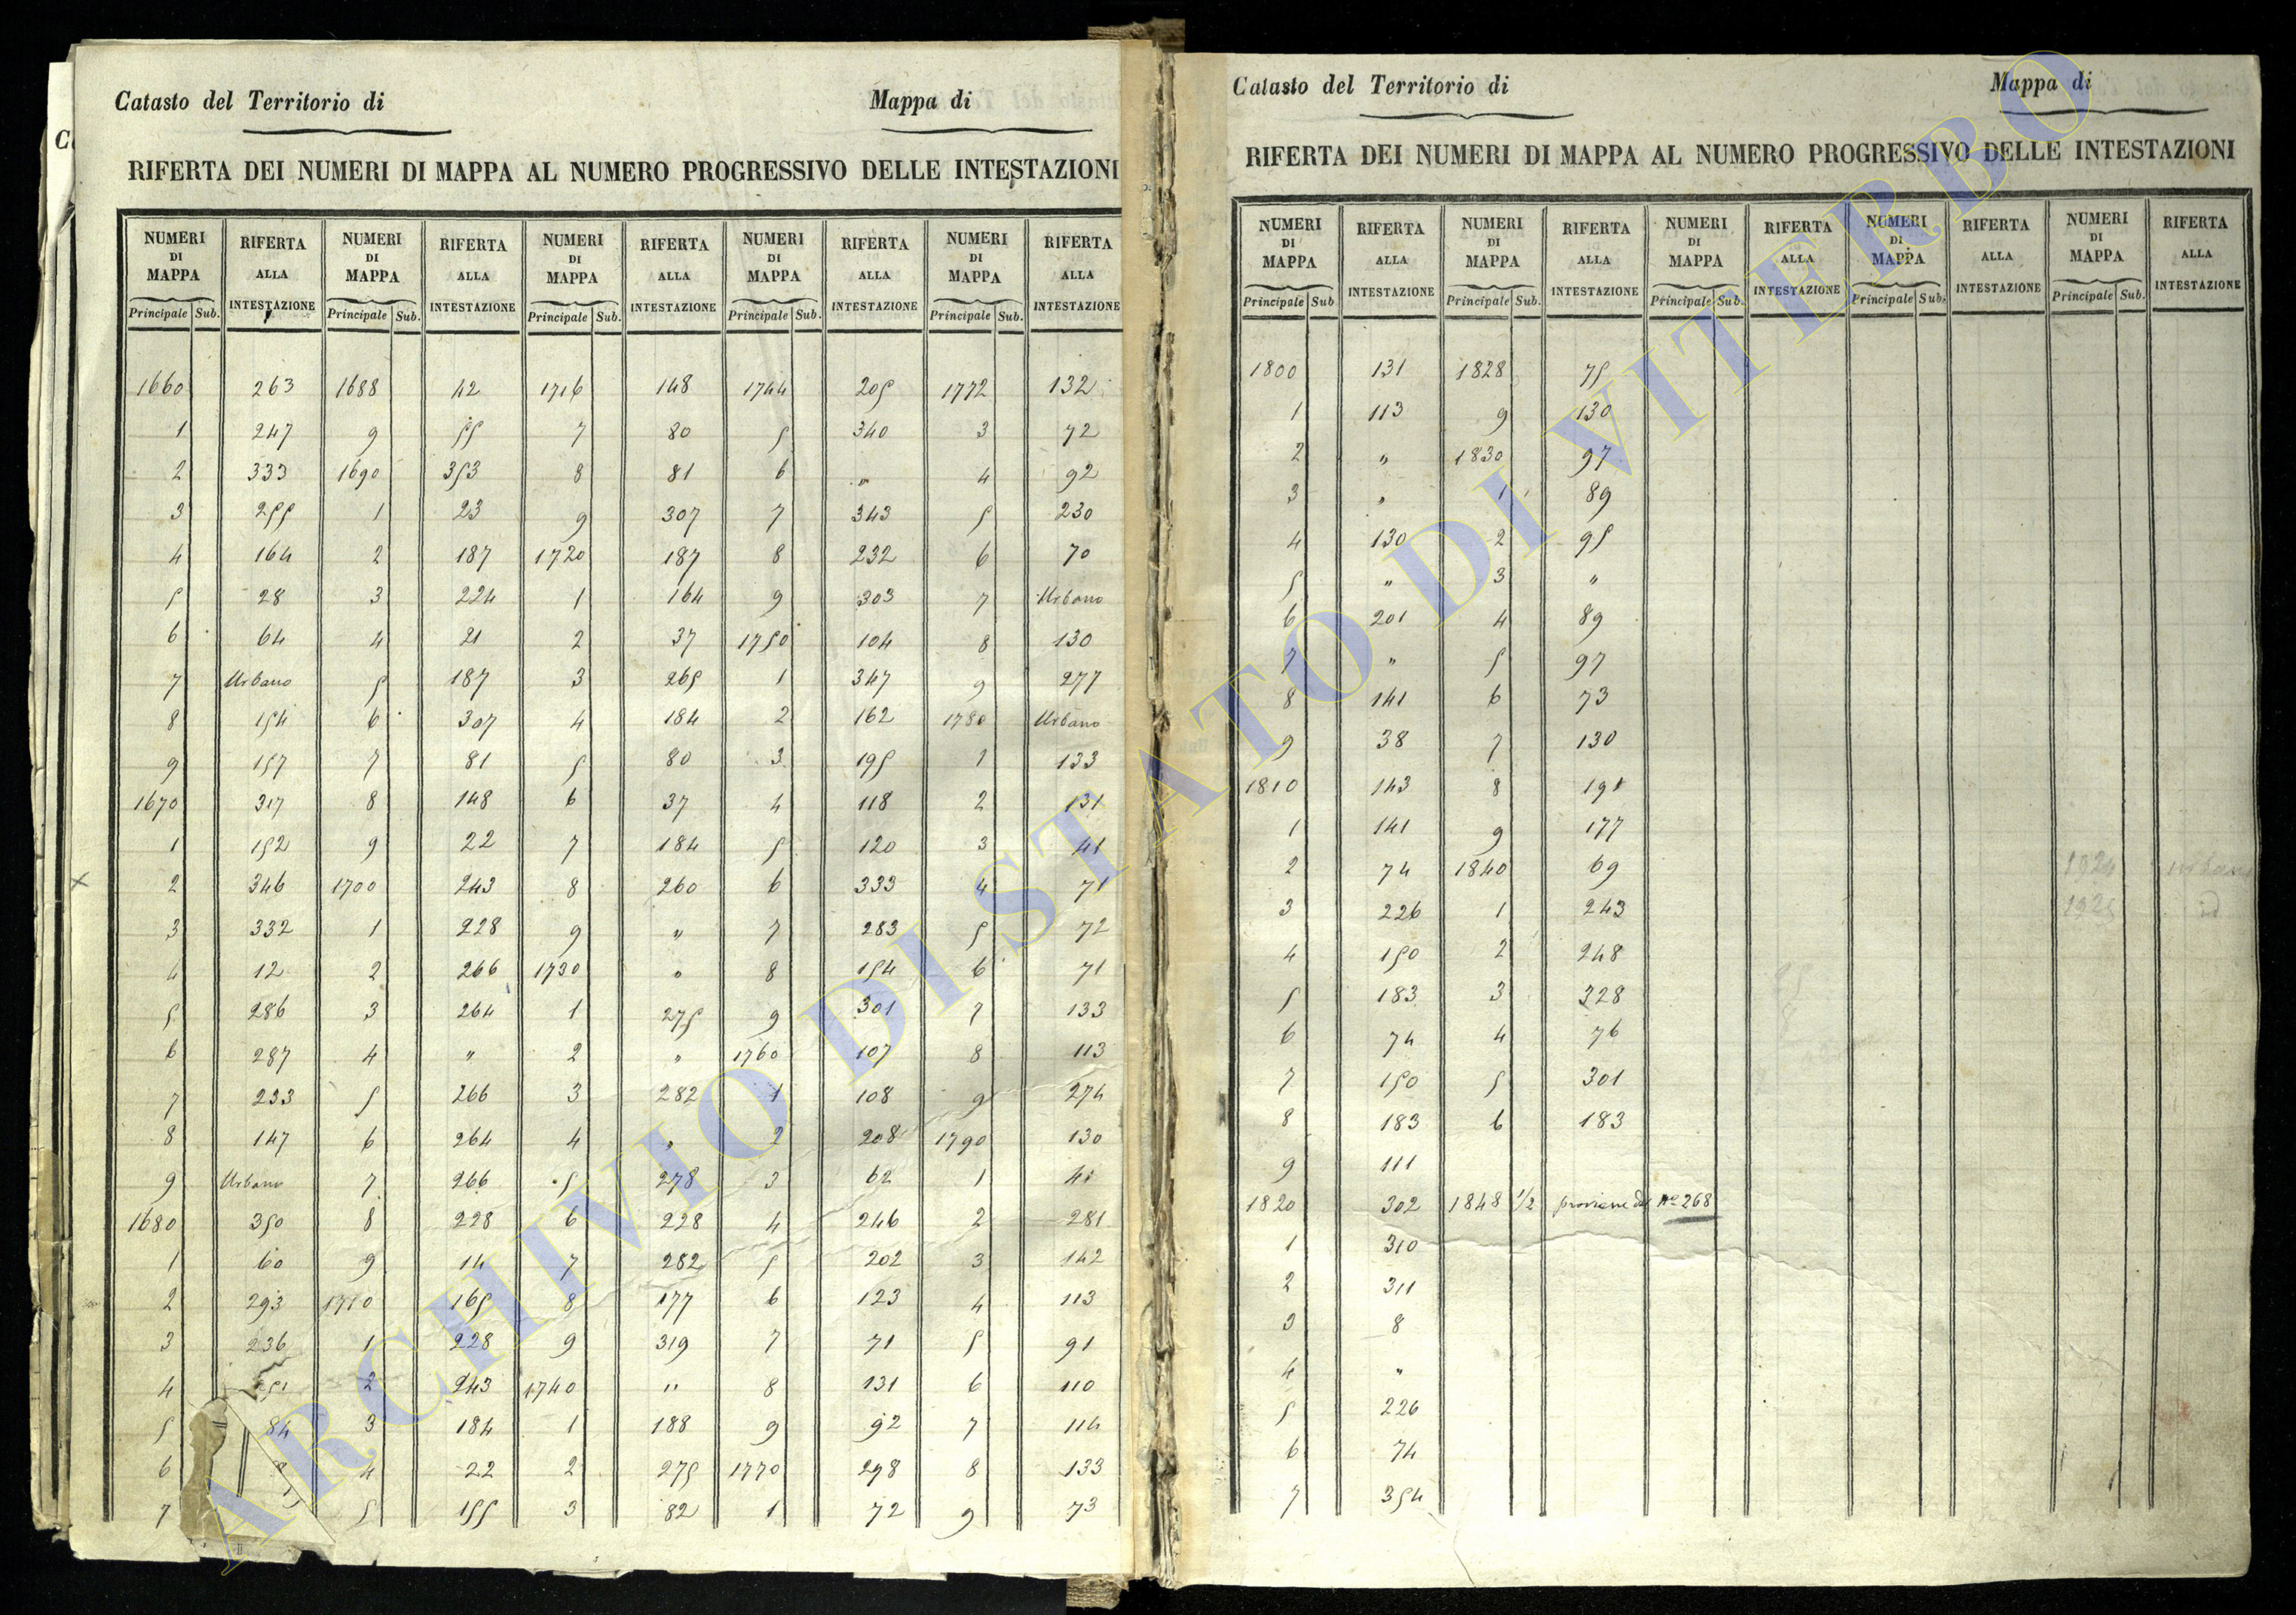 Catasto del Territorio di Mappa di
RIFERTA DEI NUMERI DI MAPPA AL NUMERO PROGRESSIVO DELLE INTESTAZIONI
NUMERI DI MAPPA RIFERTA ALLA INTESTAZIONE NUMERI DI MAPPA RIFERTA ALLA INTESTAZIONE NUMERI DI MAPPA RIFERTA ALLA INTESTAZIONE NUMERI DI MAPPA RIFERTA ALLA INTESTAZIONE NUMERI DI MAPPA RIFERTA ALLA INTESTAZIONE
Principale Sub. Principale Sub. Principale Sub. Principale Sub. Principale Sub.
1660 263 1688 42 1716 148 1744 205 1772 132
1 247 9 55 7 80 5 340 3 72
2 333 1690 353 8 81 6 " 4 92
3 255 1 23 9 307 7 343 5 230
4 164 2 187 1720 187 8 232 6 70
5 28 3 224 1 164 9 303 7 Urbano
6 64 4 21 2 37 1750 104 8 130
7 Urbano 5 187 3 265 1 347 9 277
8 154 6 307 4 184 2 162 1780 Urbano
9 157 7 81 5 80 3 195 1 133
1670 317 8 148 6 37 4 118 2 131
1 152 9 22 7 184 5 120 3 41
2 346 1700 243 8 260 6 333 4 71
3 332 1 228 9 " 7 283 5 72
4 12 2 266 1730 " 8 154 6 71
5 286 3 264 1 275 9 301 7 133
6 287 4 " 2 " 1760 107 8 113
7 233 5 266 3 282 1 108 9 274
8 147 6 264 4 " 2 208 1790 130
9 Urbano 7 266 5 278 3 62 1
1680 350 8 228 6 228 4 246 2 281
1 60 9 14 7 282 5 202 3 142
2 293 1710 165 8 177 6 123 4 113
3 236 1 228 9 319 7 71 5 91
4 2 243 1740 " 8 131 6 110
5 84 3 184 1 188 9 92 7 114
6 4 22 2 275 1770 298 8 133
7 5 155 3 82 1 72 9 73
Catasto del Territorio di Mappa di
RIFERTA DEI NUMERI DI MAPPA AL NUMERO PROGRESSIVO DELLE INTESTAZIONI
NUMERI DI MAPPA RIFERTA ALLA INTESTAZIONE NUMERI DI MAPPA RIFERTA ALLA INTESTAZIONE NUMERI DI MAPPA RIFERTA ALLA INTESTAZIONE NUMERI DI MAPPA RIFERTA ALLA INTESTAZIONE NUMERI DI MAPPA RIFERTA ALLA INTESTAZIONE
Principale Sub Principale Sub. Principale Sub. Principale Sub. Principale Sub.
1800 131 1828 75
1 113 9 130
2 " 1830 97
3 " 1 89
4 130 2 95
5 " 3 "
6 201 4 89
7 " 5 97
8 141 6 73
9 38 7 130
1810 143 8 191
1 141 9 177
2 74 1840 69 1924
3 226 1 243 1925 id
4 150 2 248
5 183 3 328
6 74 4 76
7 150 5 301
8 183 6 183
9 111
1820 302 1848 1/2 proviene dal No 268
1 310
2 311
3 8
4 "
5 226
6 74
7 354
ARCHIVIO DI STATO DI VITERBO